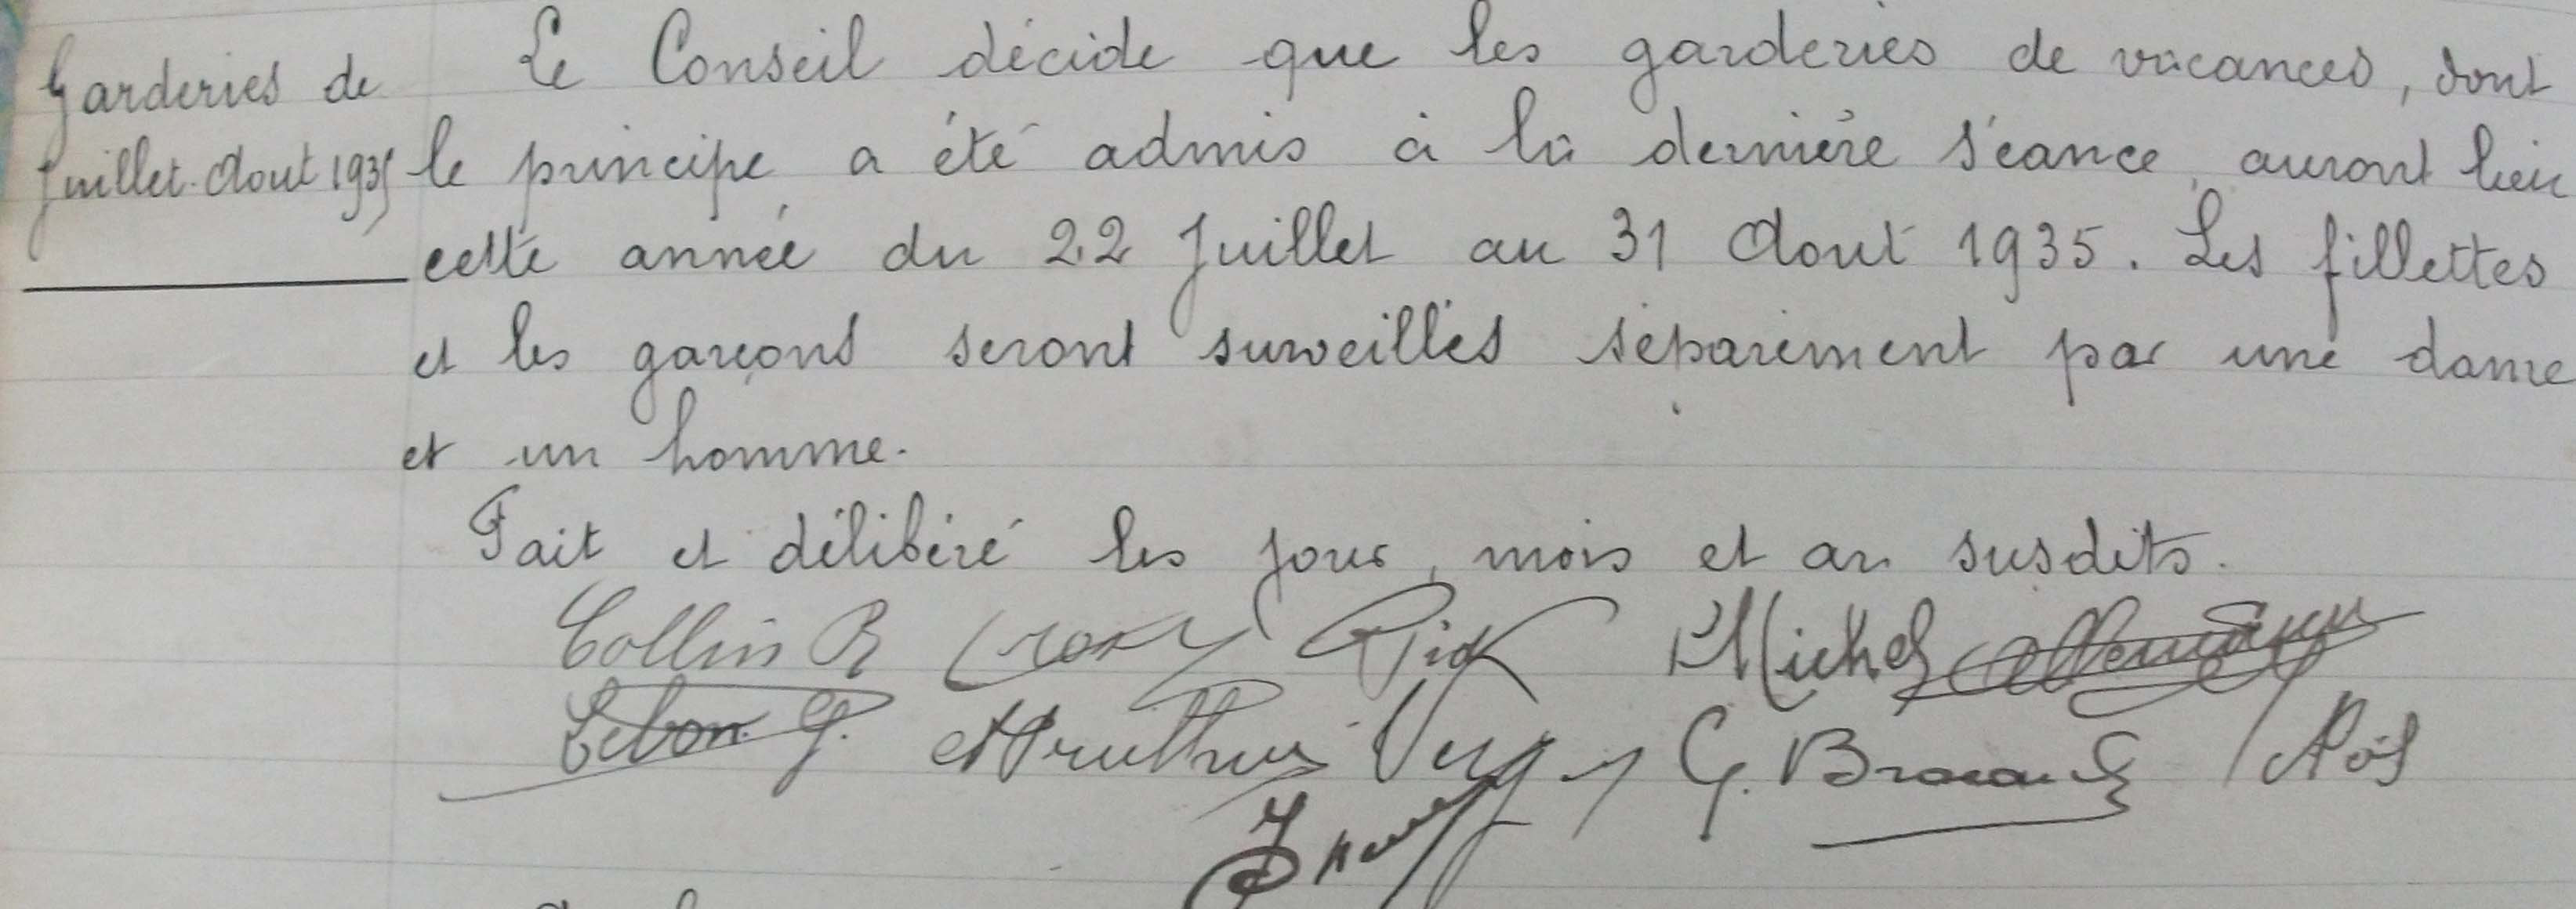 Garderies de
Juillet. Aout 1935
Le Conseil décide que les garderies de vacances, dont
le principe a été admis à la dernière séance, auront lieu
cette année du 22 Juillet au 31 Aout 1935. Les fillettes
et les garçons seront surveillés séparément par une dame
et un homme.
Fait et délibéré les jour, mois et an susdits.
Collin R Pick Michel
Lebon G.